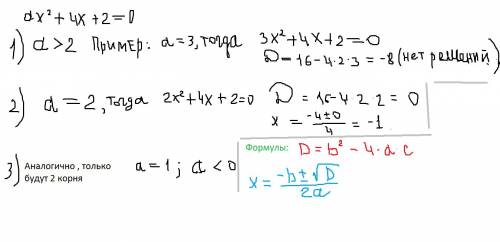 ax²+4x+2=0
1) a>2 Пример: a=3, тогда 3x²+4x+2=0
D=16-4·2·3=-8 (нет решений)
2) a=2, тогда 2x²+4x+2=0 D=16-4 2 2=0
x=(-4±0)/4=-1
3) Аналогично , только будут 2 корня a=1; a<0
Формулы: D=b²-4·a c
x=(-b±√D)/2a